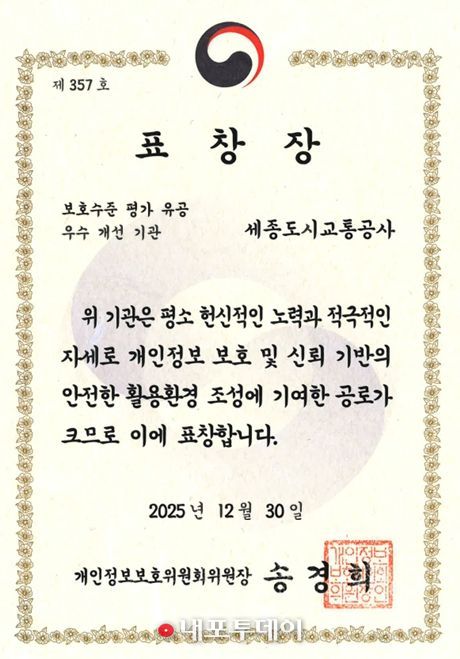 제 357 호
표 창 장
보호수준 평가 유공
우수 개선 기관
세종도시교통공사
위 기관은 평소 헌신적인 노력과 적극적인
자세로 개인정보 보호 및 신뢰 기반의
안전한 활용환경 조성에 기여한 공로가
크므로 이에 표창합니다.
2025년 12월 30일
개인정보보호위원회위원장 송경희
개인정보
보호위원회
위원장인
내포투데이